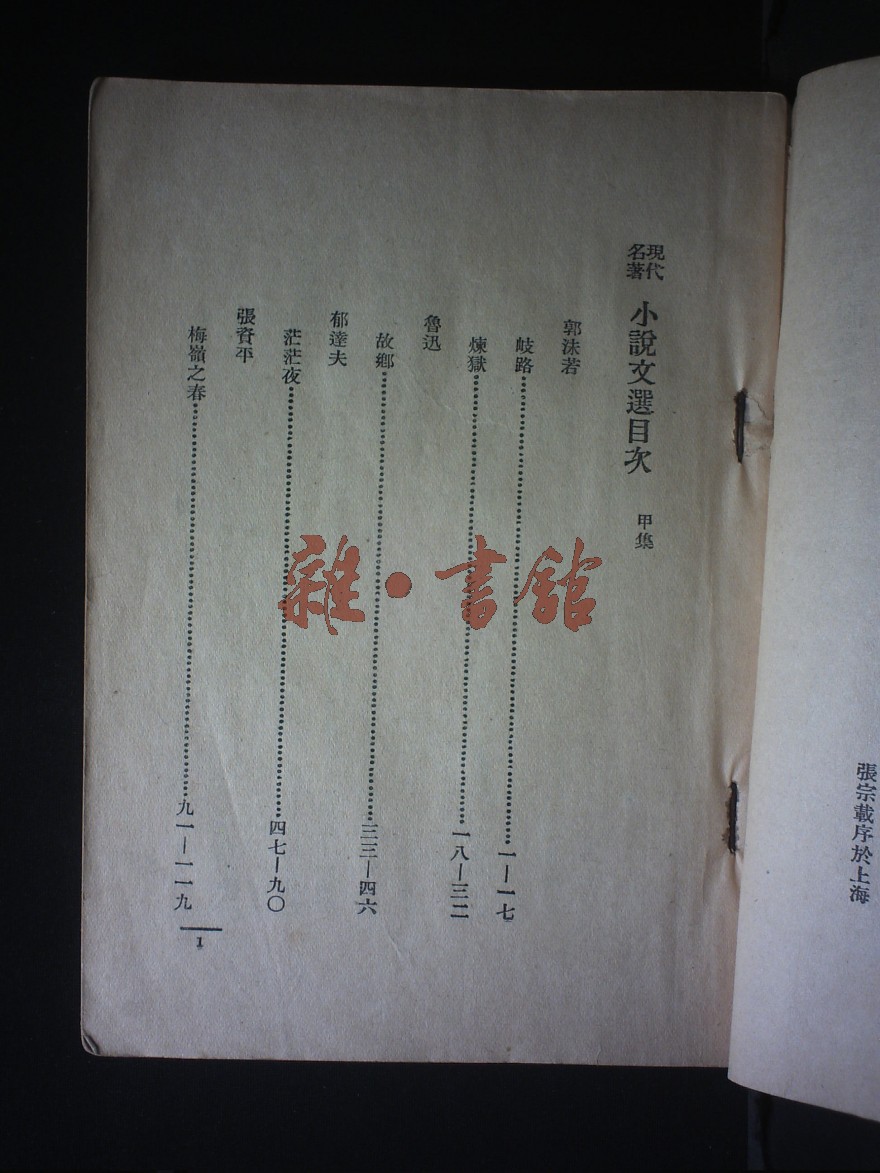 張宗載序於上海
現代名著 小說文選目次 甲集
郭沫若
歧路……一—一七
煉獄……一八—三二
魯迅
故鄉……三三—四六
郁達夫
茫茫夜……四七—九〇
張資平
梅嶺之春……九一—一一九
1
雜·書舘